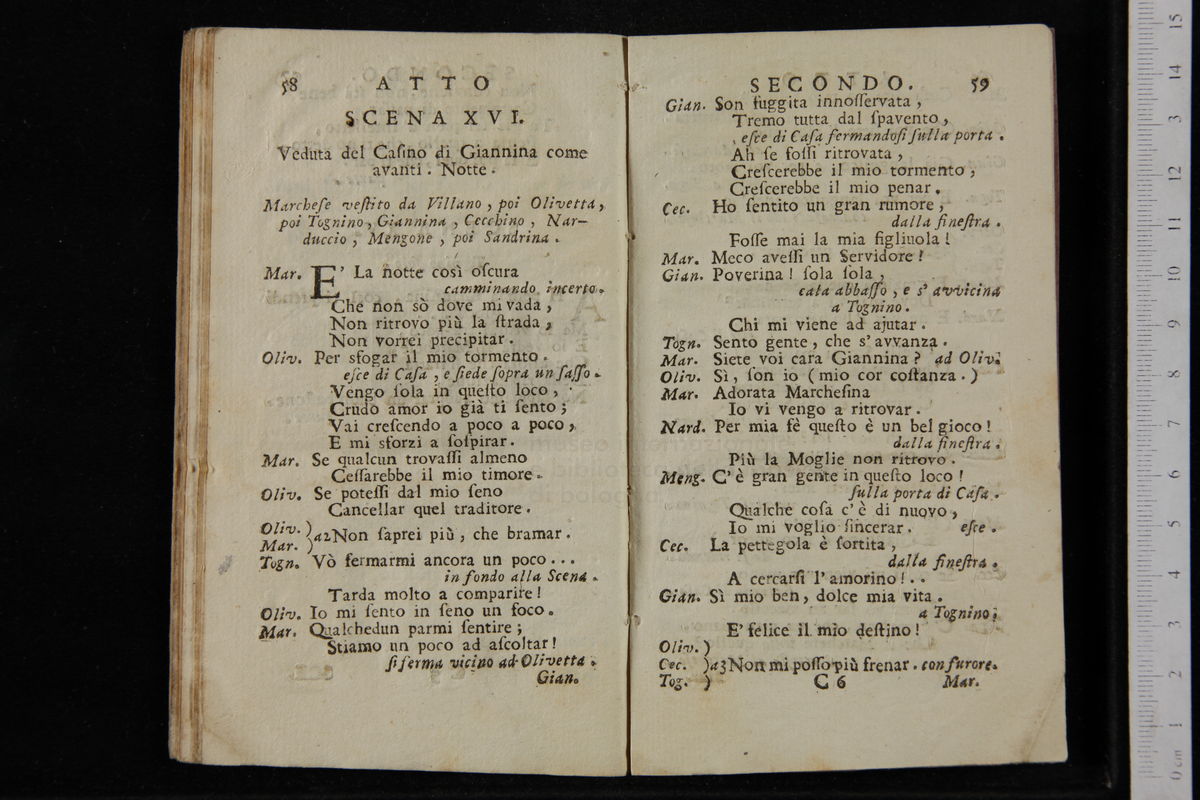 58 ATTO
SCENA XVI.
Veduta del Caſino di Giannina come
avanti. Notte.
Marcheſe veſtito da Villano, poi Olivetta,
poi Tognino, Giannina, Cecchino, Nar-
duccio, Mengone, poi Sandrina.
Mar. E' La notte così oſcura
camminando incerto.
Che non sò dove mi vada,
Non ritrovo più la ſtrada,
Non vorrei precipitar.
Oliv. Per sfogar il mio tormento.
eſce di Caſa, e ſiede ſopra un ſaſſo.
Vengo ſola in queſto loco,
Crudo amor io già ti ſento;
Vai creſcendo a poco a poco,
E mi sforzi a ſoſpirar.
Mar. Se qualcun trovaſſi almeno
Ceſſarebbe il mio timore.
Oliv. Se poteſſi dal mio ſeno
Cancellar quel traditore.
Oliv. )
Mar. ) a2 Non ſaprei più, che bramar.
Togn. Vò fermarmi ancora un poco...
in fondo alla Scena.
Tarda molto a comparire!
Oliv. Io mi ſento in ſeno un foco.
Mar. Qualchedun parmi ſentire;
Stiamo un poco ad aſcoltar!
ſi ferma vicino ad Olivetta.
Gian.
SECONDO. 59
Gian. Son fuggita innoſſervata,
Tremo tutta dal ſpavento,
eſce di Caſa fermandoſi ſulla porta.
Ah ſe foſſi ritrovata,
Creſcerebbe il mio tormento,
Creſcerebbe il mio penar.
Cec. Ho ſentito un gran rumore,
dalla fineſtra.
Foſſe mai la mia figliuola!
Mar. Meco aveſſi un Servidore!
Gian. Poverina! ſola ſola,
cala abbaſſo, e s' avvicina
a Tognino.
Chi mi viene ad ajutar.
Togn. Sento gente, che s' avvanza.
Mar. Siete voi cara Giannina? ad Oliv.
Oliv. Sì, ſon io (mio cor coſtanza.)
Mar. Adorata Marcheſina
Io vi vengo a ritrovar.
Nard. Per mia fè queſto è un bel gioco!
dalla fineſtra.
Più la Moglie non ritrovo.
Meng. C' è gran gente in queſto loco!
ſulla porta di Caſa.
Qualche coſa c' è di nuovo,
Io mi voglio ſincerar. eſce.
Cec. La pettegola è ſortita,
dalla fineſtra.
A cercarſi l' amorino!..
Gian. Sì mio ben, dolce mia vita.
a Tognino;
E' felice il mio deſtino!
Oliv. )
Cec. ) a3 Non mi poſſo più frenar. con furore.
Tog. ) C 6 Mar.